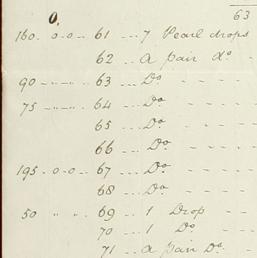 63
0.
160. 0-0-- 61 ... 7 Pearl drops
62 .. A pair do
90 -- " -- " -- 63 ... Do
75 -- " -- " -- 64 ... Do
65 .. Do
66 ... Do
195 -0-0-- 67 ... Do
68 ... Do
50 " " .. 69 .. 1 Drop
70 ... 1 Do
71 .. A pair Do